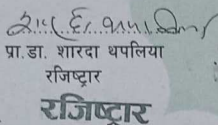 प्रा.डा. शारदा थपलिया
रजिष्ट्रार
रजिष्ट्रार